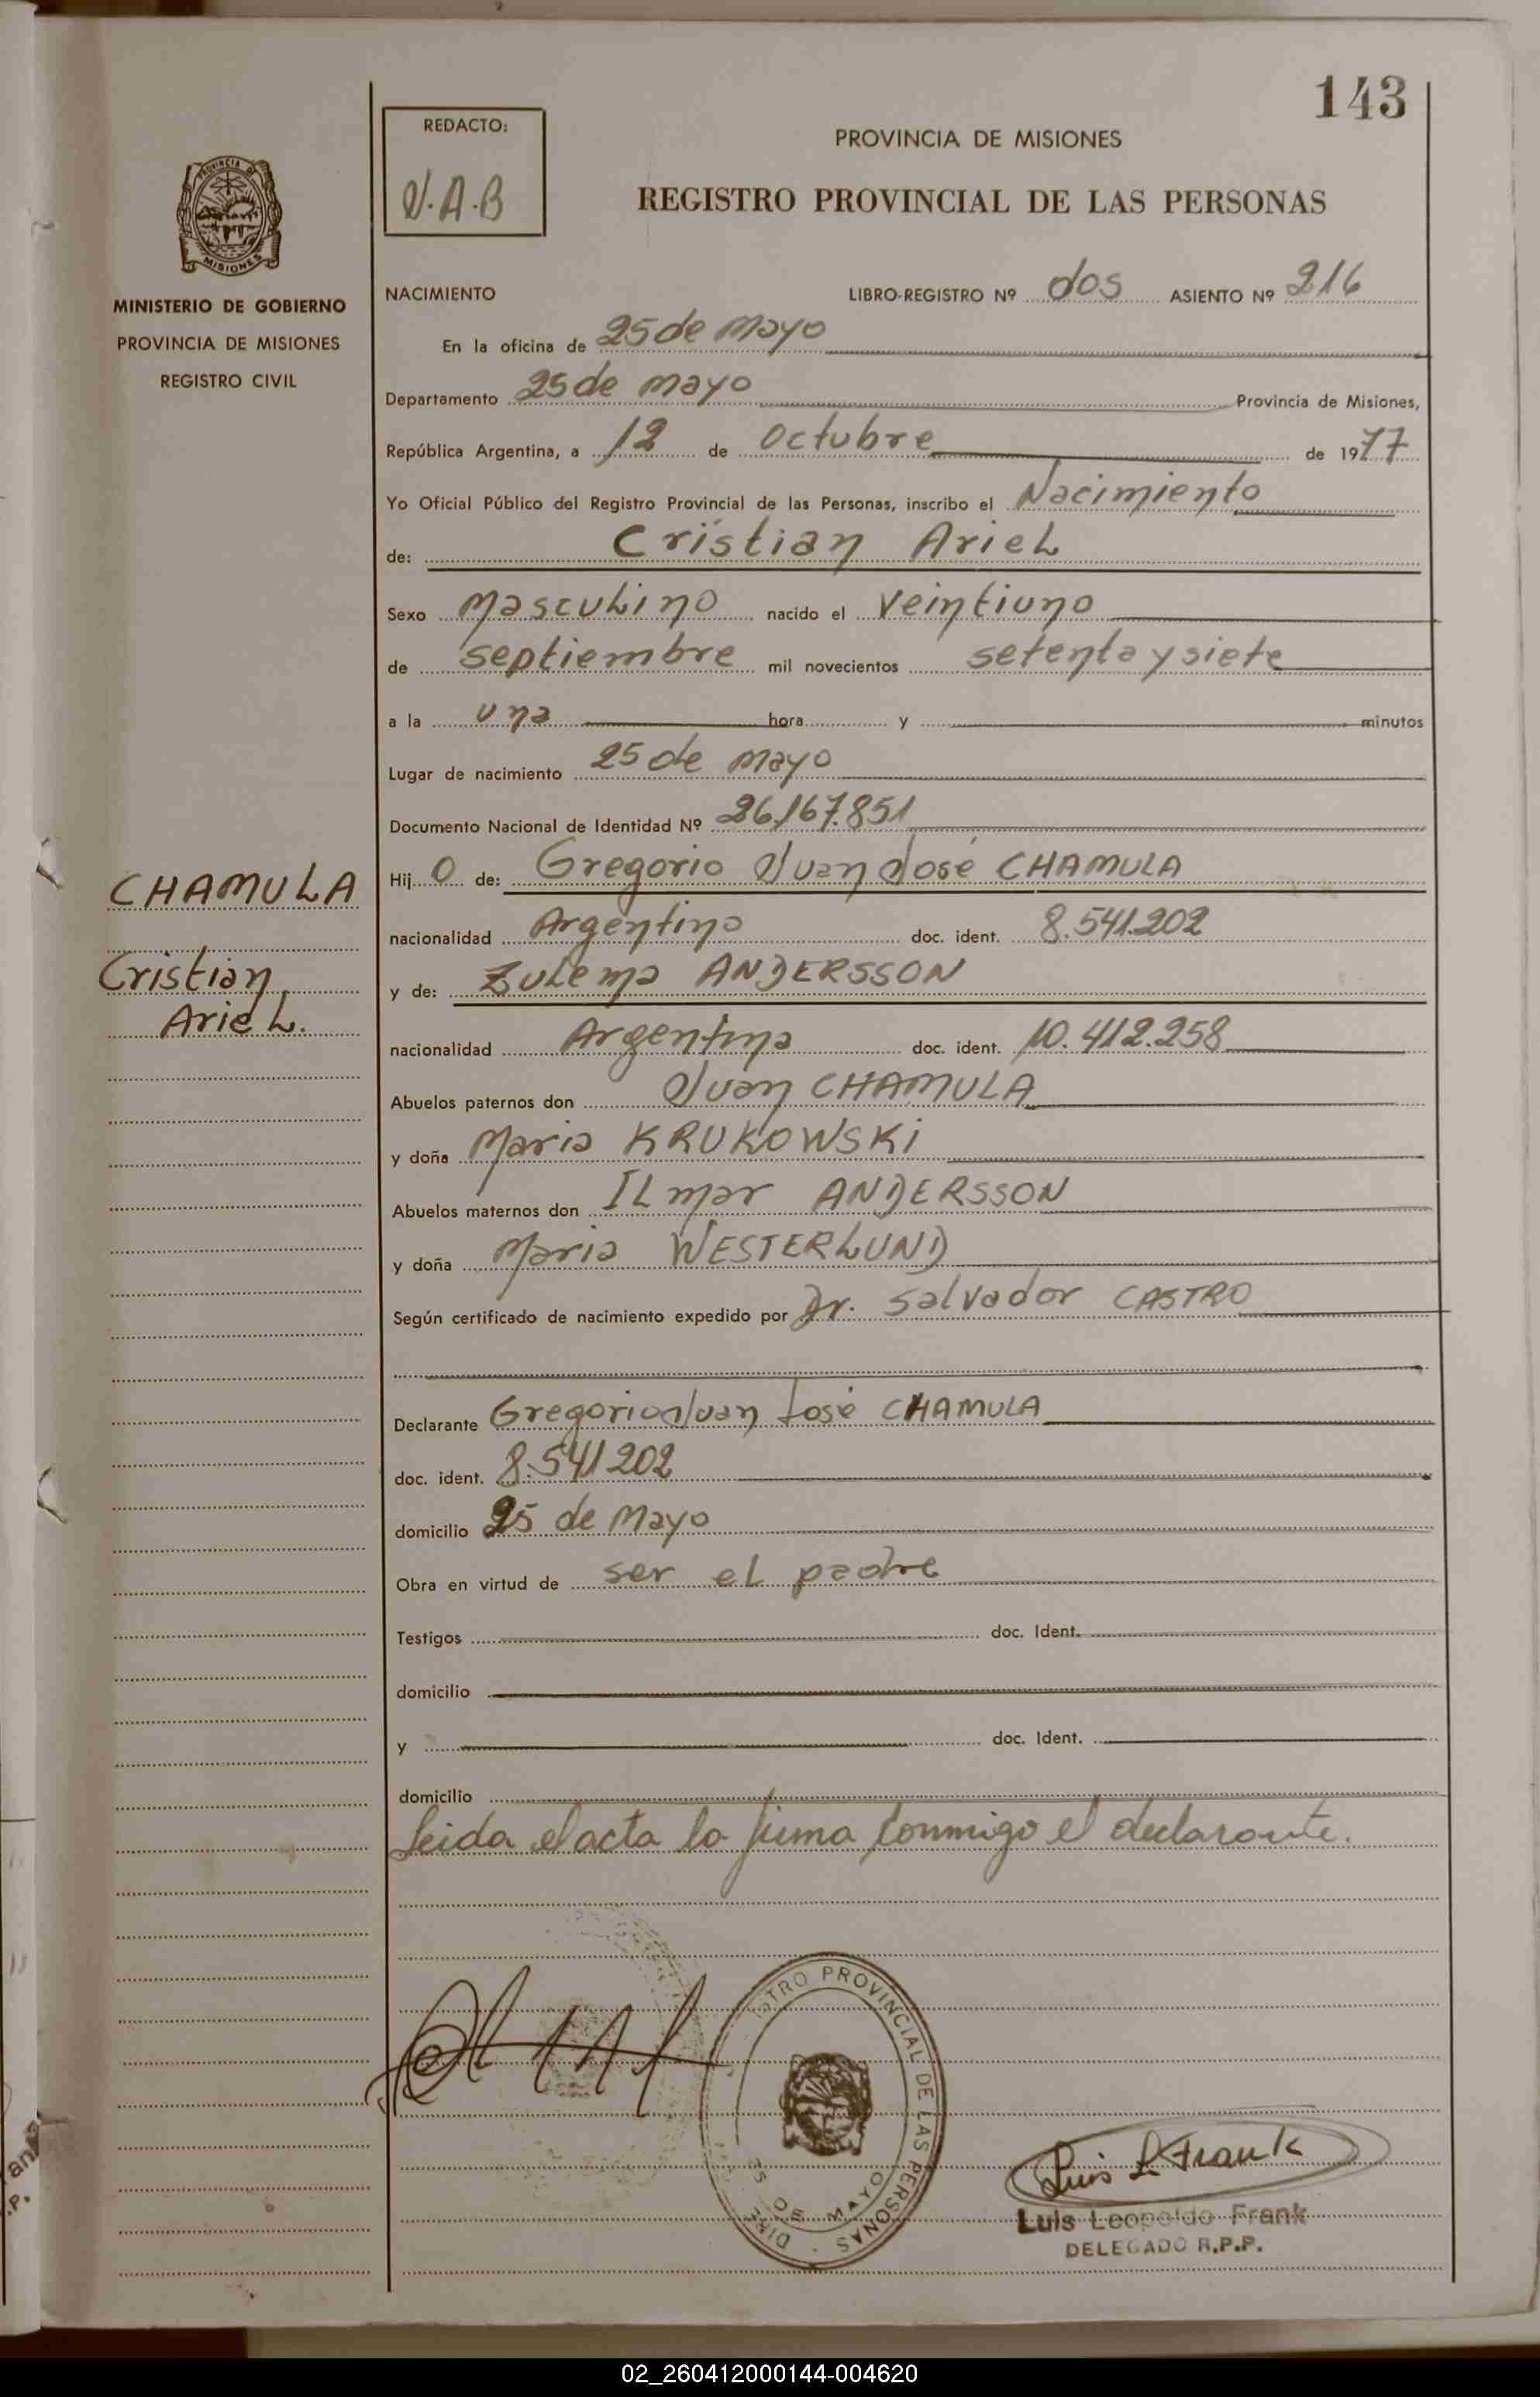 143
REDACTO:
J.A.B
PROVINCIA DE MISIONES
REGISTRO PROVINCIAL DE LAS PERSONAS
PROVINCIA DE
MISIONES
MINISTERIO DE GOBIERNO
PROVINCIA DE MISIONES
REGISTRO CIVIL
NACIMIENTO LIBRO-REGISTRO Nº dos ASIENTO Nº 216
En la oficina de 25 de mayo
Departamento 25 de mayo Provincia de Misiones,
República Argentina, a 12 de Octubre de 1977
Yo Oficial Público del Registro Provincial de las Personas, inscribo el Nacimiento
de: Cristian Ariel
Sexo masculino nacido el veintiuno
de septiembre mil novecientos setenta y siete
a la una hora y minutos
Lugar de nacimiento 25 de mayo
Documento Nacional de Identidad Nº 26.167.851
CHAMULA
Cristian
Ariel.
Hijo de: Gregorio Juan José CHAMULA
nacionalidad Argentino doc. ident. 8.541.202
y de: Zulema ANDERSSON
nacionalidad Argentina doc. ident. 10.412.258
Abuelos paternos don Juan CHAMULA
y doña Maria KRUKOWSKi
Abuelos maternos don ILmar ANDERSSON
y doña Maria WESTERLUND
Según certificado de nacimiento expedido por Dr. Salvador CASTRO
Declarante Gregorio Juan José CHAMULA
doc. ident. 8.541202
domicilio 25 de Mayo
Obra en virtud de ser el padre
Testigos doc. Ident.
domicilio
y doc. Ident.
domicilio
Leida el acta la firma conmigo el declarante.
STRO PROVINCIAL DE LAS PERSONAS
25 DE MAYO
Luis L Frank
Luis Leopoldo Frank
DELEGADO R.P.P.
02_260412000144-004620